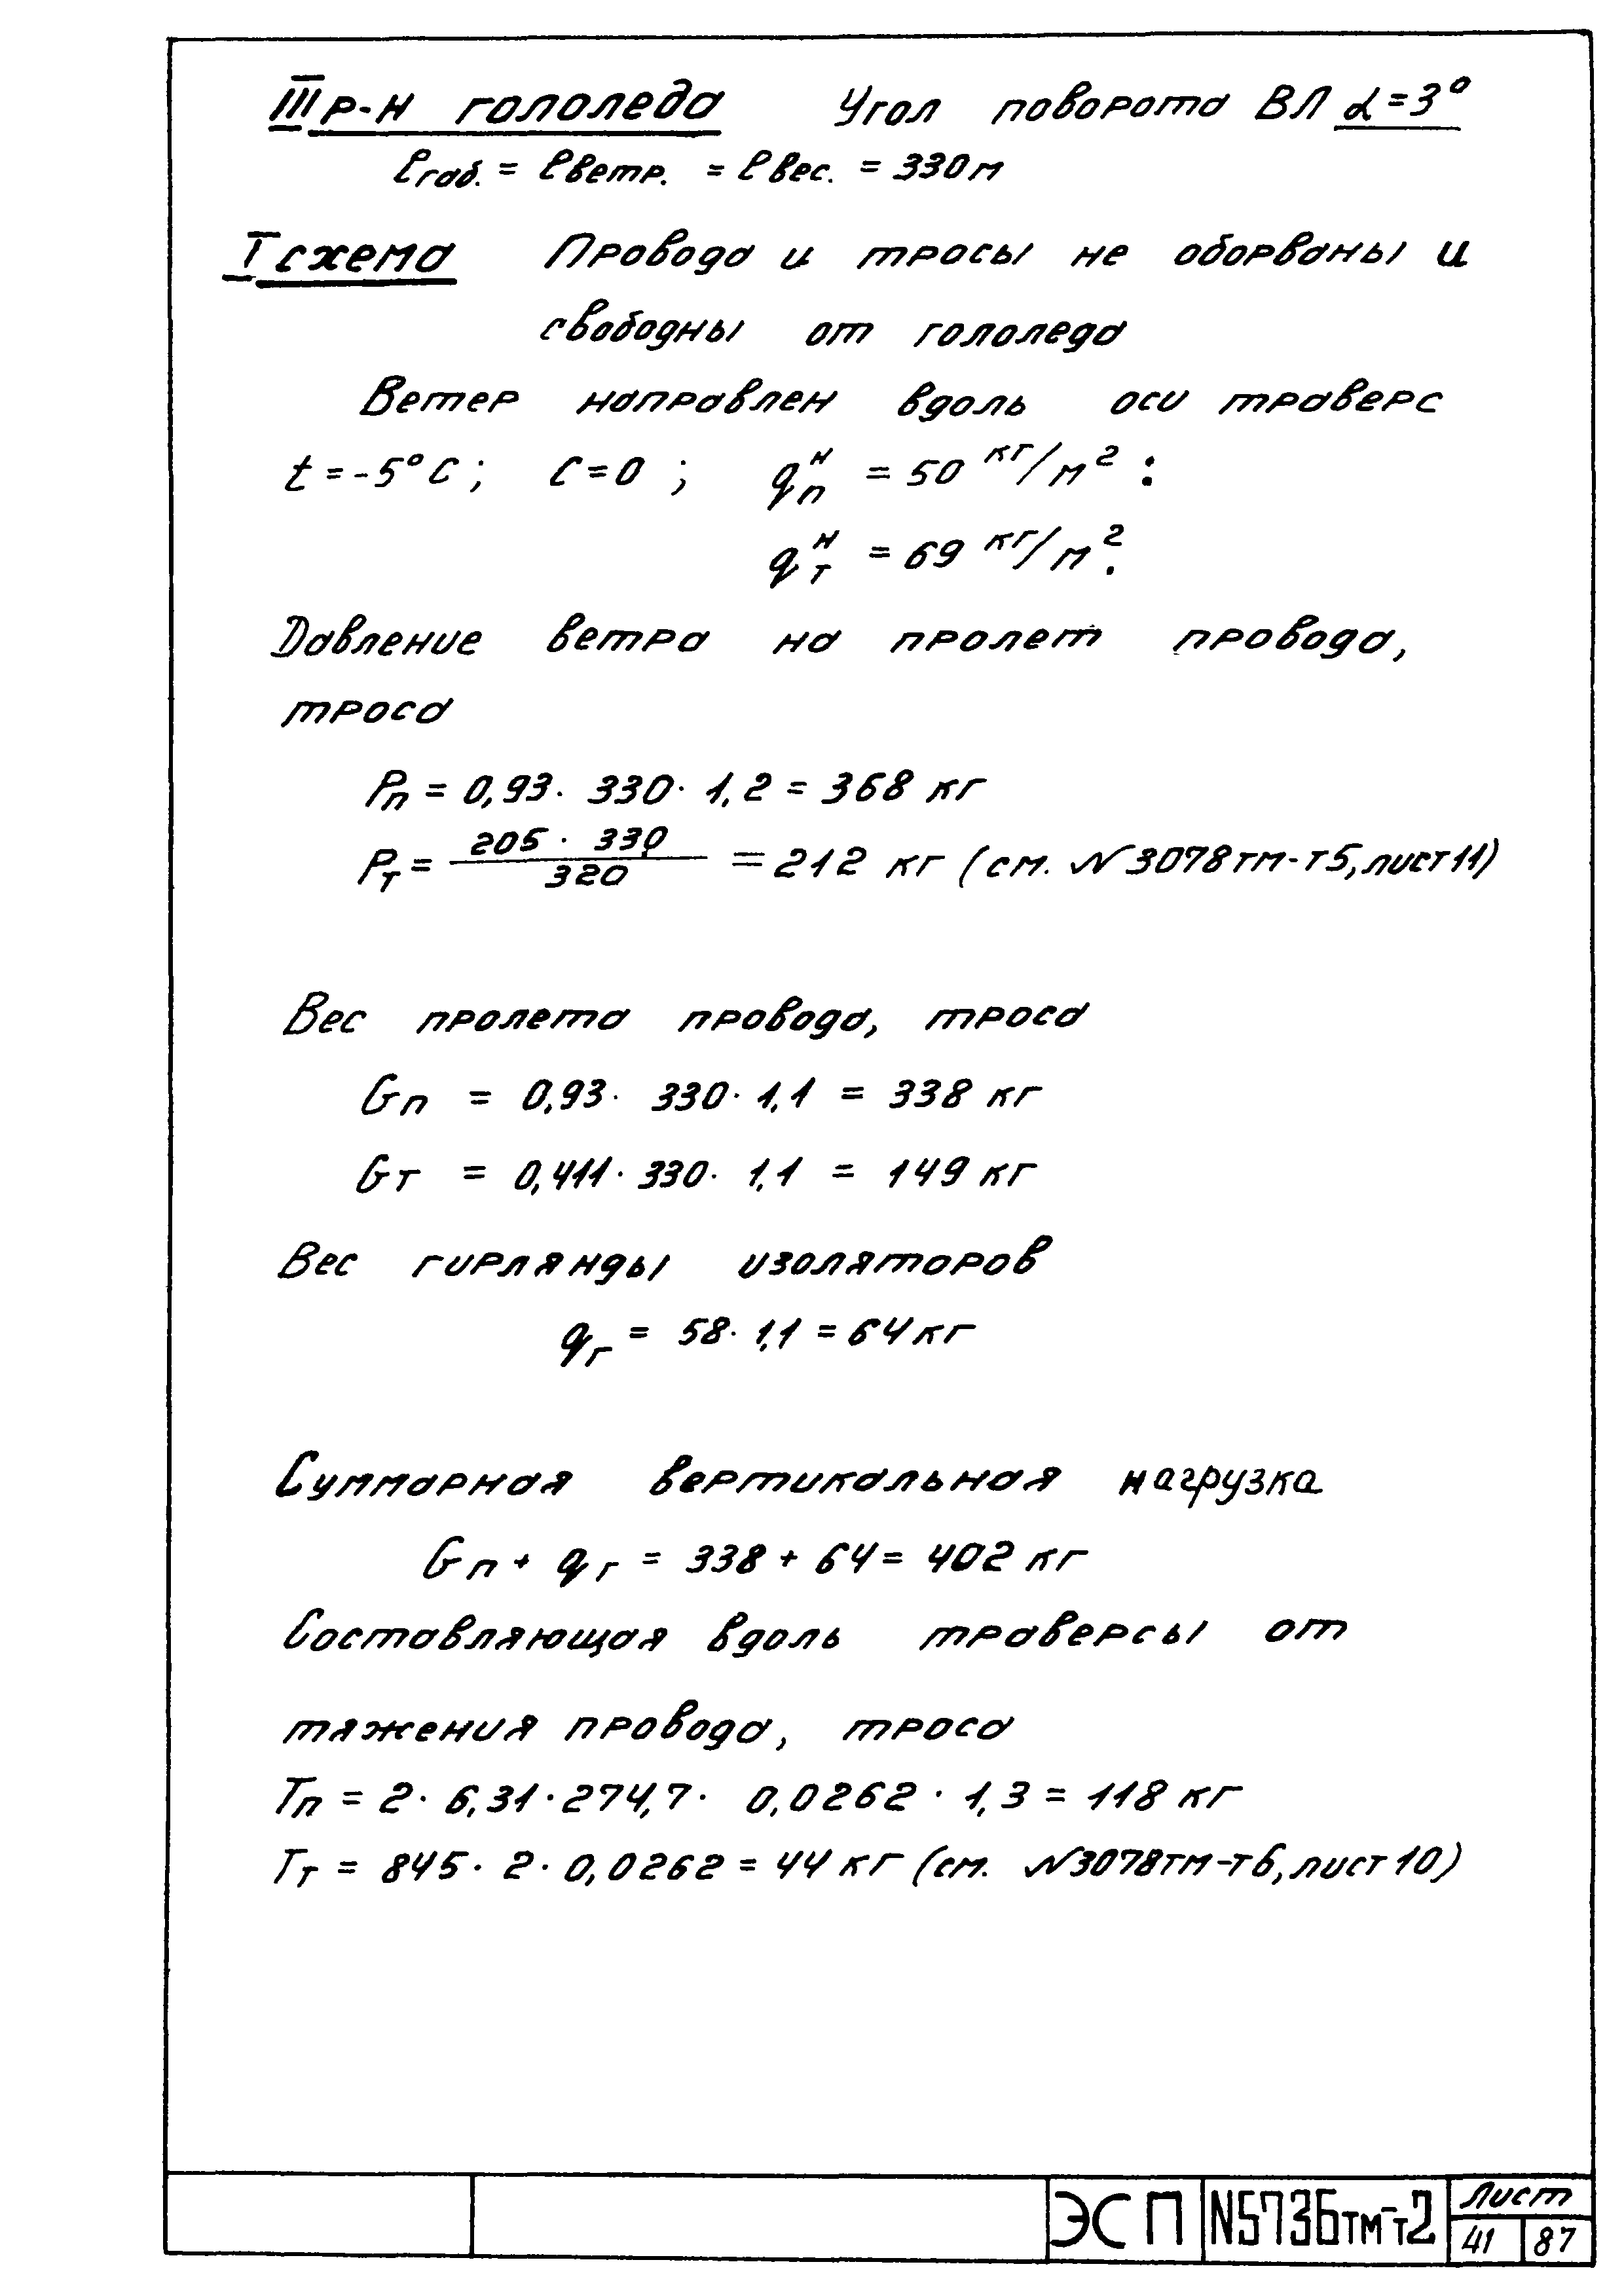 III р-н гололеда Угол поворота ВЛ α=3°
ℓгаб. = ℓветр. = ℓвес. = 330м
I схема Провода и тросы не оборваны и
свободны от гололеда
Ветер направлен вдоль оси траверс
t=-5°C; C=0; qнп = 50 кг/м²:
qнт = 69 кг/м².
Давление ветра на пролет провода,
троса
Pп = 0,93· 330· 1,2 = 368 кг
Pт = 205 · 330 / 320 = 212 кг (см. №3078тм-т5, лист11)
Вес пролета провода, троса
Gп = 0,93· 330· 1,1 = 338 кг
Gт = 0,411· 330· 1,1 = 149 кг
Вес гирлянды изоляторов
qг = 58· 1,1 = 64кг
Суммарная вертикальная нагрузка
Gп + qг = 338 + 64 = 402 кг
Составляющая вдоль траверсы от
тяжения провода, троса
Тп = 2· 6,31·274,7· 0,0262 · 1,3 = 118 кг
Тт = 845· 2· 0,0262 = 44 кг (см. №3078тм-т6, лист 10)
ЭСП N5736тм-т2 Лист
41 87